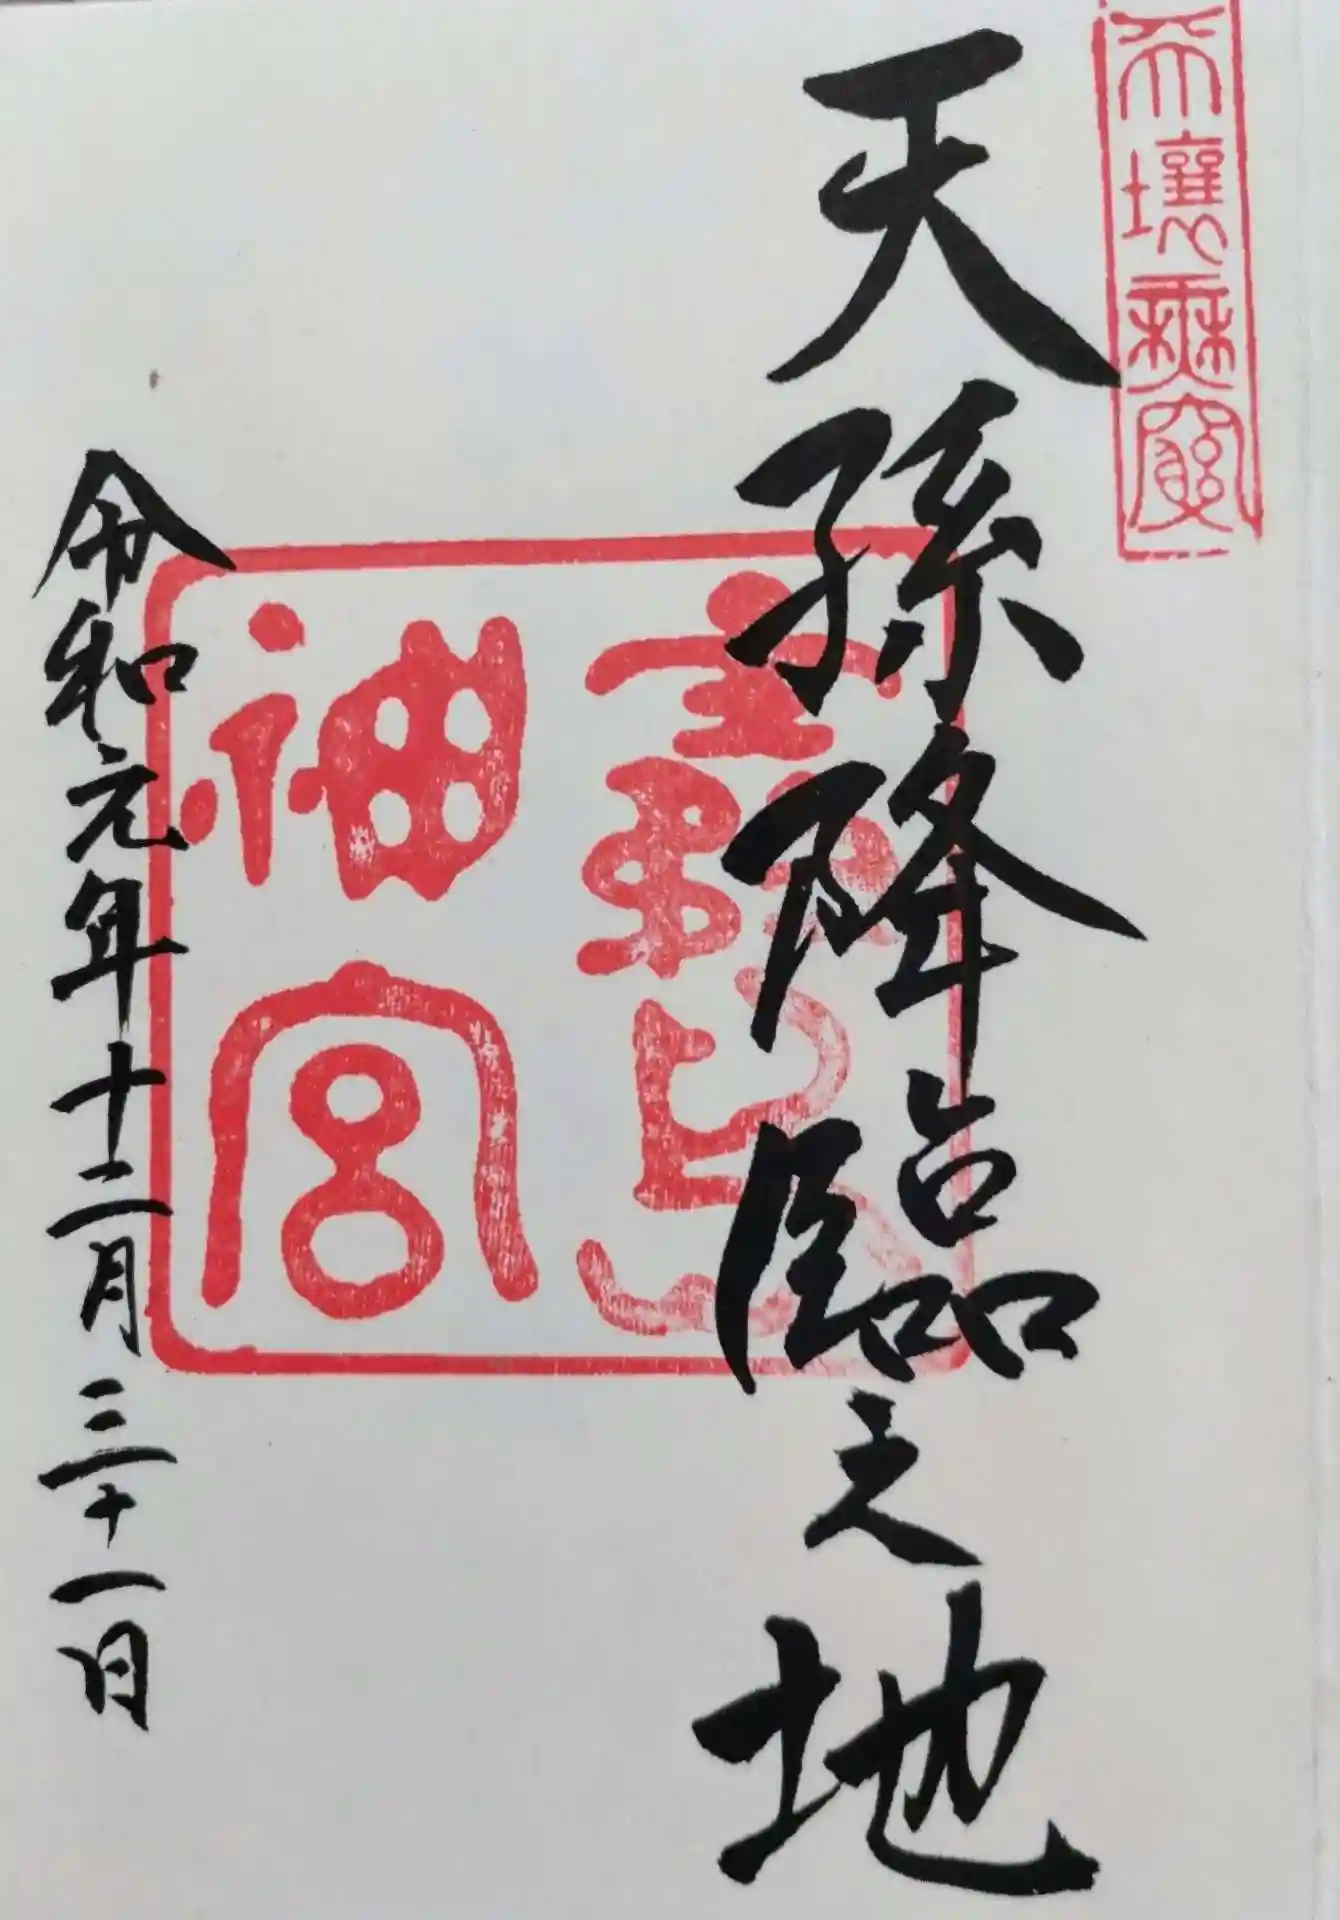 天壌無窮
天孫降臨之地
霧島神宮
令和元年十二月三十一日